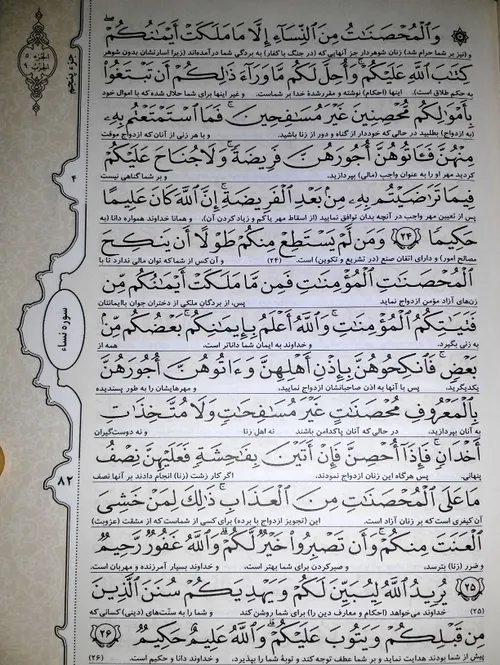 وَالْمُحْصَنَاتُ مِنَ النِّسَاءِ إِلَّا مَا مَلَكَتْ أَيْمَانُكُمْ
(و نیز بر شما حرام شد) زنان شوهردار جز آنهایی که (در جنگ با کفار) به بردگی شما درآمده‌اند (زیرا اسارتشان بدون شوهر
كِتَابَ اللَّهِ عَلَيْكُمْ وَأُحِلَّ لَكُمْ مَا وَرَاءَ ذَلِكُمْ أَنْ تَبْتَغُوا
به حکم طلاق است). اینها (احکام) نوشته و مقررشدهٔ خدا بر شماست. و غیر اینها برای شما حلال شده که با اموال خود
بِأَمْوَالِكُمْ مُحْصِنِينَ غَيْرَ مُسَافِحِينَ فَمَا اسْتَمْتَعْتُمْ بِهِ
(به ازدواج) بطلبید در حالی که خوددار از گناه و دور از زنا باشید. و با هر زنی از آنان که ازدواج موقت
مِنْهُنَّ فَآتُوهُنَّ أُجُورَهُنَّ فَرِيضَةً وَلَا جُنَاحَ عَلَيْكُمْ
کردید مهر او را به عنوان واجب (مالی) بپردازید. و بر شما گناهی نیست
فِيمَا تَرَاضَيْتُمْ بِهِ مِنْ بَعْدِ الْفَرِيضَةِ إِنَّ اللَّهَ كَانَ عَلِيمًا
پس از تعیین مهر واجب در آنچه بدان توافق نمایید (از اسقاط مهر یا کم و زیاد کردن آن). و همانا خداوند همواره دانا (به
حَكِيمًا ﴿٢٤﴾ وَمَنْ لَمْ يَسْتَطِعْ مِنْكُمْ طَوْلًا أَنْ يَنْكِحَ
مصالح امور) و دارای اتقان صنع (در تشریع و تکوین) است. (۲۴) و آن کس از شما که توان مالی ندارد تا با
الْمُحْصَنَاتِ الْمُؤْمِنَاتِ فَمِنْ مَا مَلَكَتْ أَيْمَانُكُمْ مِنْ
زن‌های آزاد مؤمن ازدواج نماید پس، از بردگان ملکی از دختران جوان باایمانتان
فَتَيَاتِكُمُ الْمُؤْمِنَاتِ وَاللَّهُ أَعْلَمُ بِإِيمَانِكُمْ بَعْضُكُمْ مِنْ
به زنی بگیرد. و خداوند به ایمان شما داناتر است، همه از
بَعْضٍ فَانْكِحُوهُنَّ بِإِذْنِ أَهْلِهِنَّ وَآتُوهُنَّ أُجُورَهُنَّ
یکدیگرید، پس با آنها به اذن صاحبانشان ازدواج نمایید، و مهرهایشان را به طور پسندیده
بِالْمَعْرُوفِ مُحْصَنَاتٍ غَيْرَ مُسَافِحَاتٍ وَلَا مُتَّخِذَاتِ
به آنان بپردازید، در حالی که آنان پاکدامن باشند نه اهل زنا و نه دوست‌گیران
أَخْدَانٍ فَإِذَا أُحْصِنَّ فَإِنْ أَتَيْنَ بِفَاحِشَةٍ فَعَلَيْهِنَّ نِصْفُ
پنهانی. پس هرگاه این زنان ازدواج نمودند، اگر کار زشت (زنا) انجام دادند بر آنها نصف
مَا عَلَى الْمُحْصَنَاتِ مِنَ الْعَذَابِ ذَلِكَ لِمَنْ خَشِيَ
آن کیفری است که بر زنان آزاد است. این (تجویز ازدواج با برده) برای کسی از شماست که از مشقت (عزوبت)
الْعَنَتَ مِنْكُمْ وَأَنْ تَصْبِرُوا خَيْرٌ لَكُمْ وَاللَّهُ غَفُورٌ رَحِيمٌ
و ضرر (زنا) بترسد، و صبر کردن برای شما بهتر است، و خداوند بسیار آمرزنده و مهربان است.
﴿٢٥﴾ يُرِيدُ اللَّهُ لِيُبَيِّنَ لَكُمْ وَيَهْدِيَكُمْ سُنَنَ الَّذِينَ
(۲۵) خداوند می‌خواهد (احکام و معارف دین را) برای شما روشن کند و شما را به سنّت‌های (دینی) کسانی که
مِنْ قَبْلِكُمْ وَيَتُوبَ عَلَيْكُمْ وَاللَّهُ عَلِيمٌ حَكِيمٌ ﴿٢٦﴾
پیش از شما بودند هدایت نماید و بر شما عطف توجه کند و توبهٔ شما را بپذیرد، و خداوند دانا و حکیم است. (۲۶)
جزء پنجم
۴
سوره نساء
۸۲